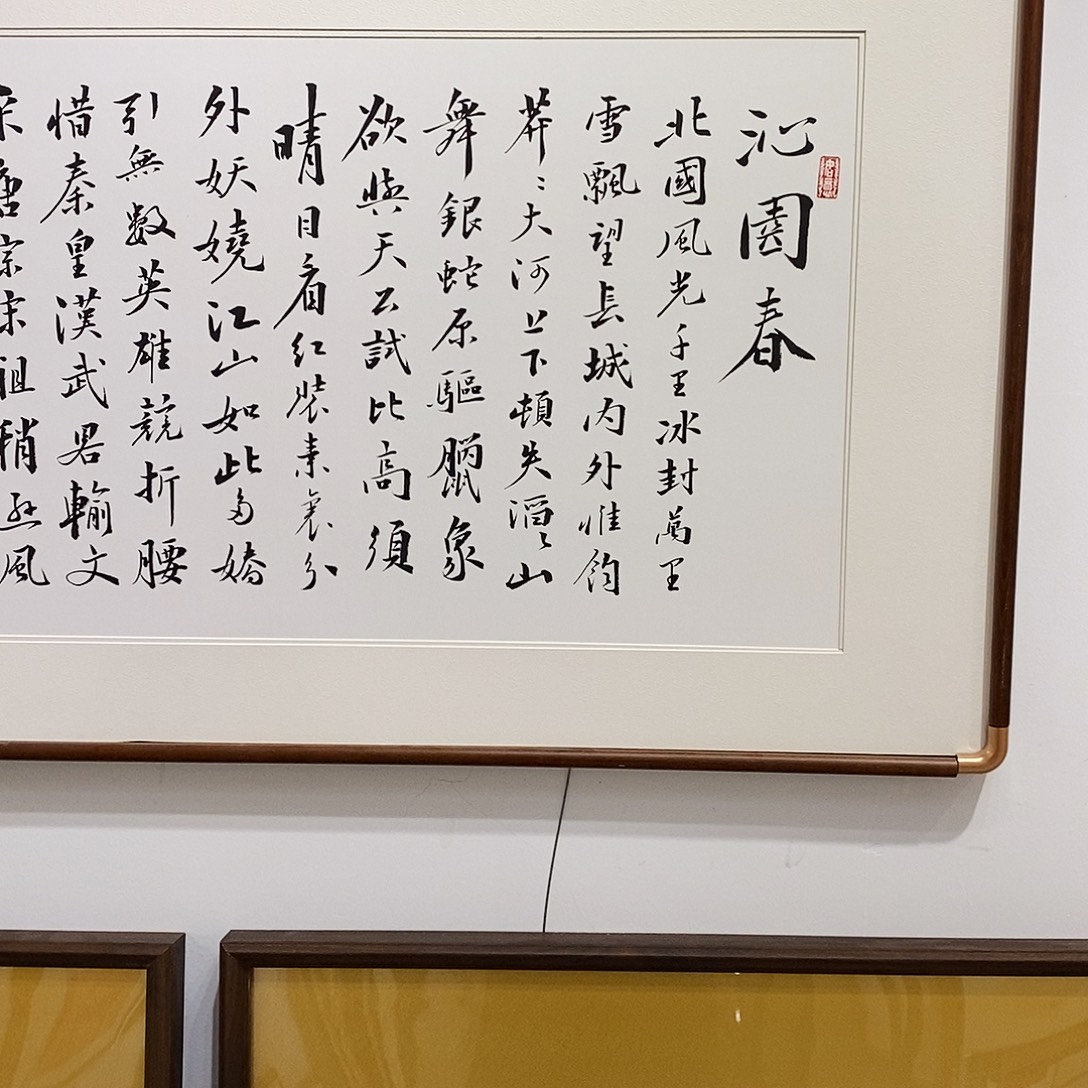 沁園春
北國風光千里冰封萬里
雪飄望長城内外惟
莽〻大河上下頓失滔〻山
舞銀蛇原驅臘象
欲與天公試比高須
晴日看紅裝素裹分
外妖嬈江山如此多嬌
引無數英雄競折腰
惜秦皇漢武畧輸文
采唐宗宋祖稍遜風